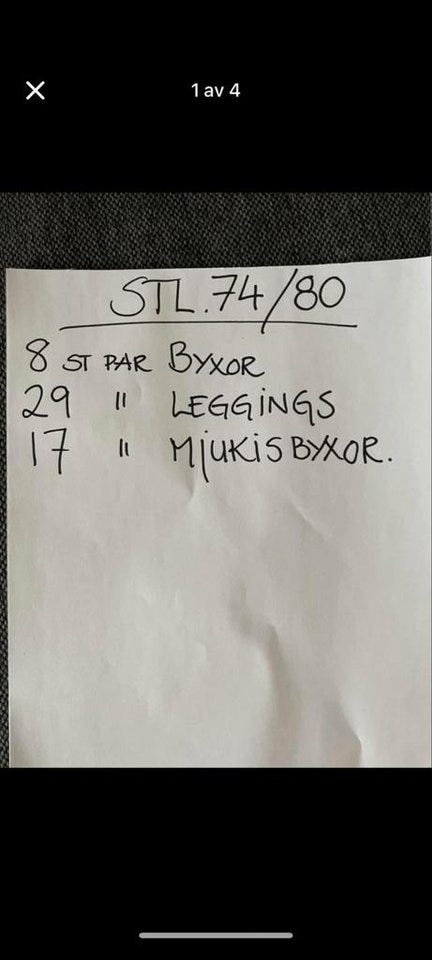 1 av 4
STL. 74/80
8 ST PAR BYXOR
29 " LEGGINGS
17 " MJUKISBYXOR.